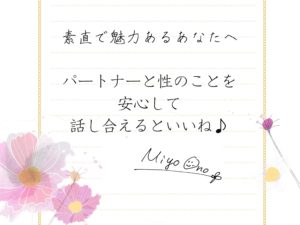 素直で魅力あるあなたへ
パートナーと性のことを
安心して
話し合えるといいね♪
Miyo Ono